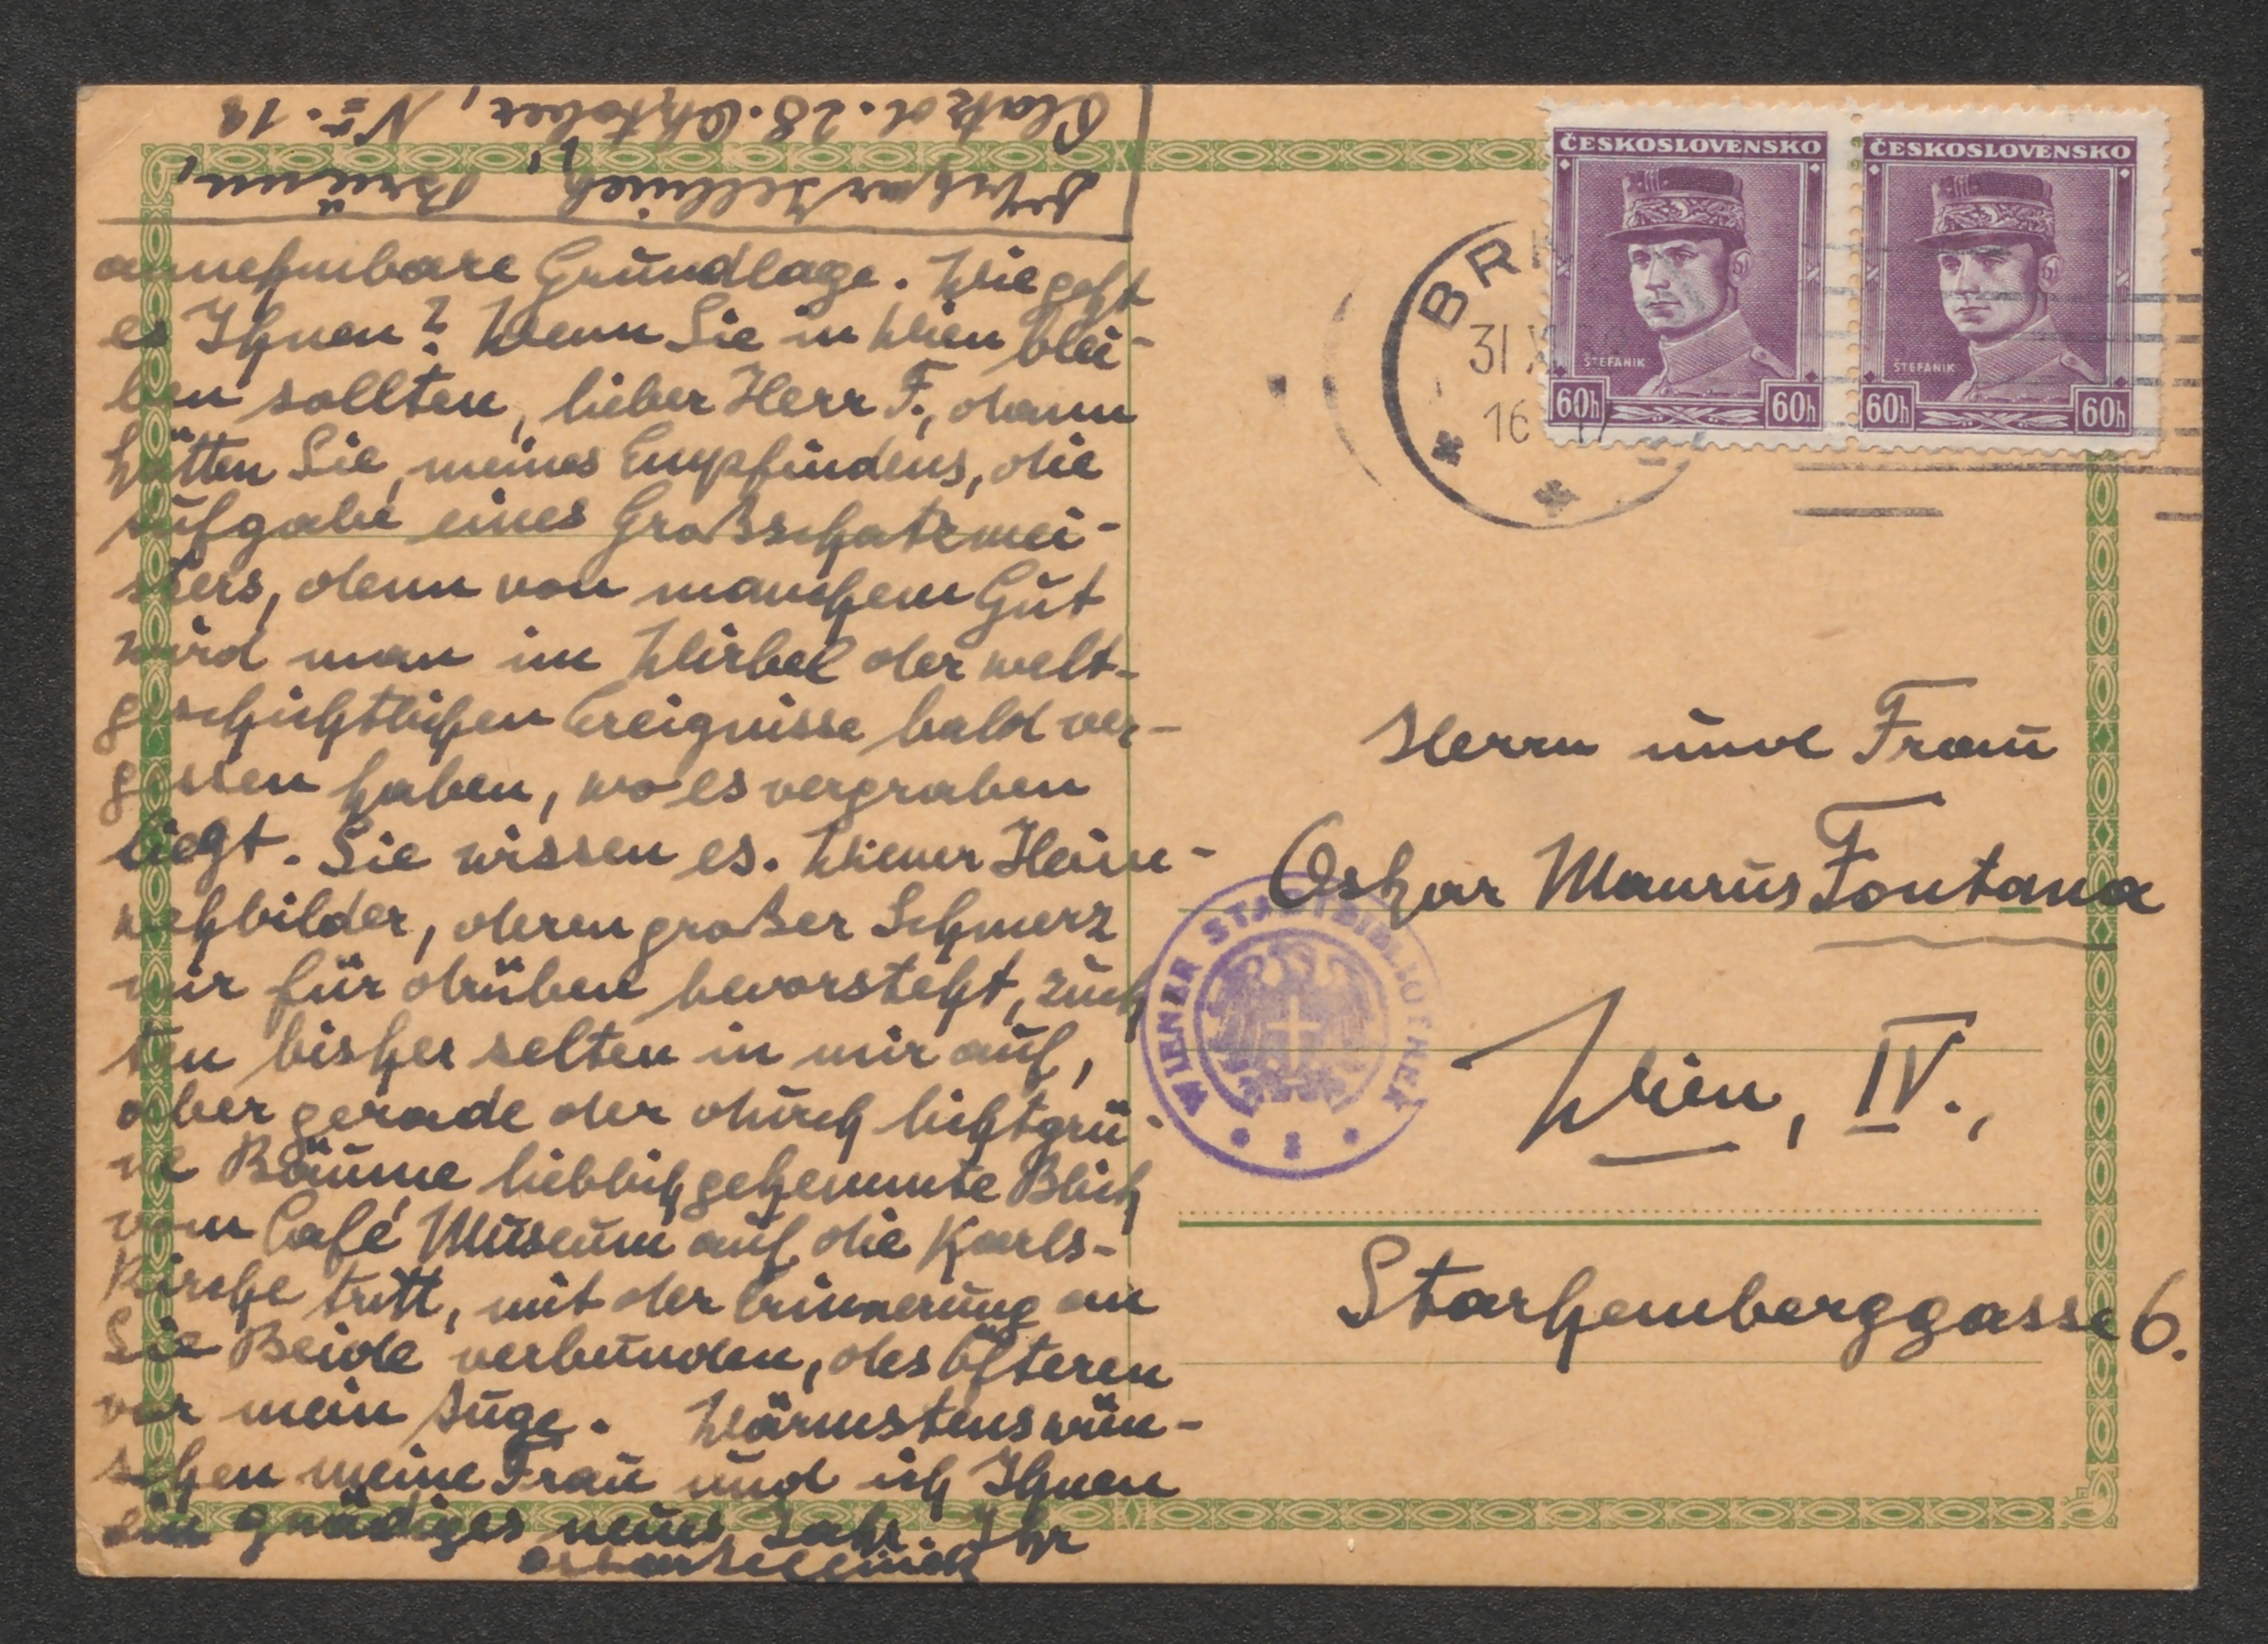 Oskar Jellinek, Brünn,
Platz d. 28. Oktober, Nr. 19
annehmbare Grundlage. Wie geht
es Ihnen? Wenn Sie in Wien blei-
ben sollten, lieber Herr F., dann
hätten Sie, meines Empfindens, die
Aufgabe eines Großschatzmei-
sters, denn von manchem Gut
wird man im Wirbel der welt-
geschichtlichen Ereignisse bald ver-
gessen haben, wo es vergraben
liegt. Sie wissen es. Wiener Heim-
wehbilder, deren großer Schmerz
mir für drüben bevorsteht, zuck
ten bisher selten in mir auf,
aber gerade der durch lichtgrü-
ne Bäume lieblich gehemmte Blick
vom Café Museum auf die Karls-
kirche tritt, mit der Erinnerung an
Sie Beide verbunden, des Öfteren
vor mein Auge. Wärmstens wün-
schen meine Frau und ich Ihnen
ein gnädiges neues Jahr. Ihr
Oskar Jellinek
ČESKOSLOVENSKO
ŠTEFANIK
60h 60h
ČESKOSLOVENSKO
ŠTEFANIK
60h 60h
31 X
16
Herrn und Frau
Oskar Maurus Fontana
WIENER STADTBIBLIOTHEK
Wien, IV.,
Starhemberggasse 6.